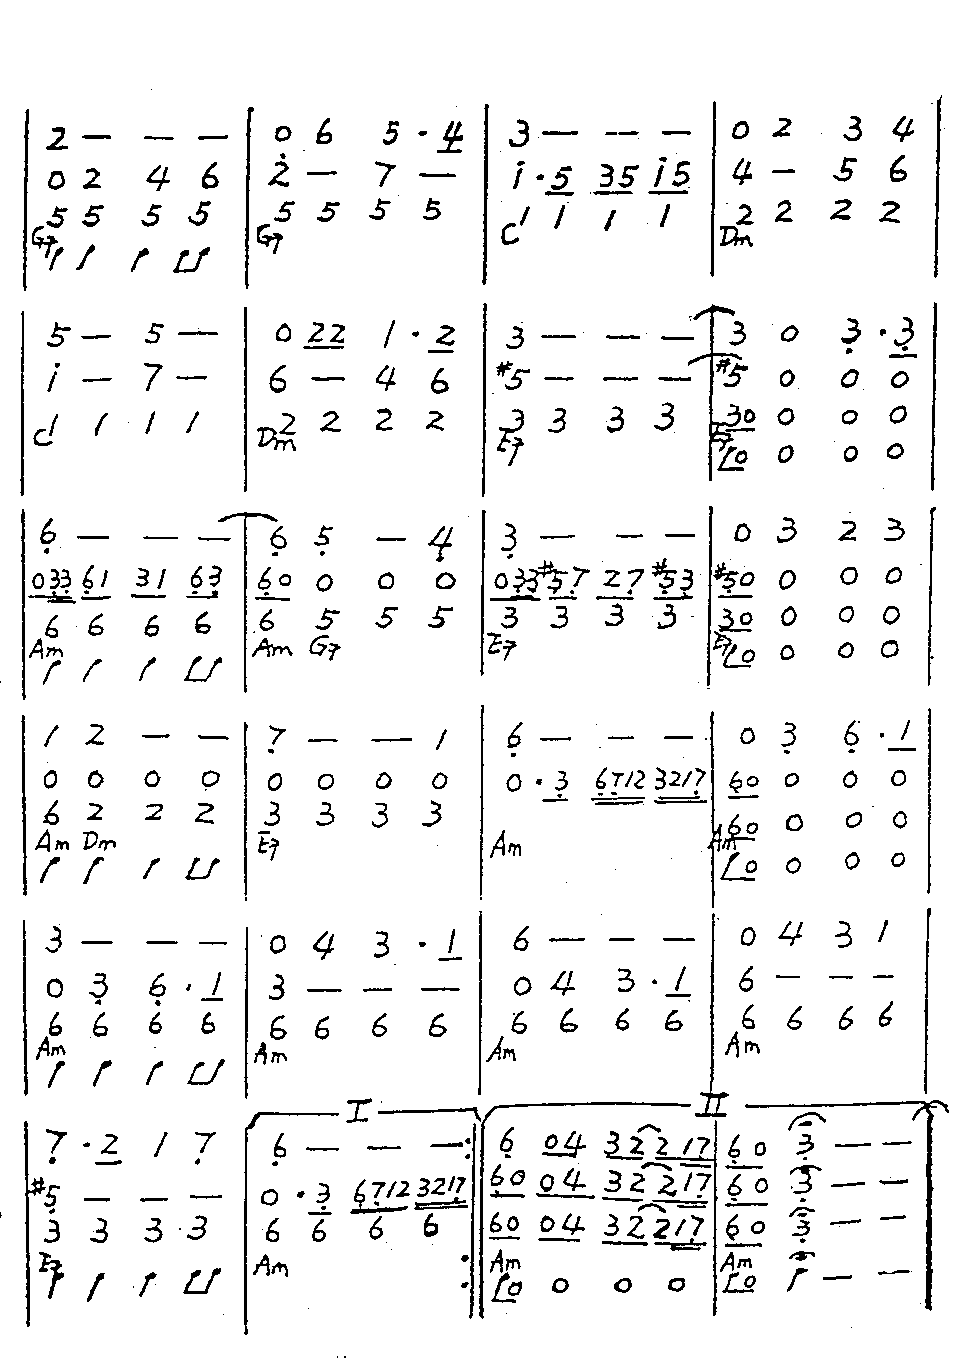 2 — — — | 0 6 5 · 4 | 3 — — — | 0 2 3 4
0 2 4 6 | 2̇ — 7 — | i · 5 35 i5 | 4 — 5 6
5 5 5 5 | 5 5 5 5 | 1 1 1 1 | 2 2 2 2
G7 | G7 | C | Dm
5 — 5 — | 0 22 1 · 2 | 3 — — — | 3 0 3̣ · 3̣
i — 7 — | 6 — 4 6 | #5 — — — | #5 0 0 0
1 1 1 1 | 2 2 2 2 | 3 3 3 3 | 30 0 0 0
C | Dm | E7 | E7 0 0 0 0
6̣ — — — | 6̣ 5̣ — 4̣ | 3̣ — — — | 0 3 2 3
03̣3̣ 6̣1 31 6̣3̣ | 6̣0 0 0 0 | 03̣3̣ #5̣7̣ 27̣ #5̣3̣ | #5̣0 0 0 0
6 6 6 6 | 6 5 5 5 | 3 3 3 3 | 30 0 0 0
Am | Am G7 | E7 | E7 0 0 0 0
1 2 — — | 7̣ — — 1 | 6̣ — — — | 0 3̣ 6̣ · 1
0 0 0 0 | 0 0 0 0 | 0 · 3̣ 6̣7̣12 3217̣ | 6̣0 0 0 0
6 2 2 2 | 3 3 3 3 | 6̣0 0 0 0
Am Dm | E7 | Am | Am 0 0 0 0
3 — — — | 0 4 3 · 1 | 6 — — — | 0 4 3 1
0 3̣ 6̣ · 1 | 3 — — — | 0 4 3 · 1 | 6 — — —
6 6 6 6 | 6 6 6 6 | 6 6 6 6 | 6 6 6 6
Am | Am | Am | Am
I II
7̣ · 2 1 7̣ | 6̣ — — — : | 6̣ 04 32 217̣ | 6̣0 3̣ — —
#5̣ — — — | 0 · 3̣ 6̣7̣12 3217̣ | 6̣0 04 32 217̣ | 6̣0 3̣ — —
3 3 3 3 | 6 6 6 6 | 60 04 32 217̣ | 6̣0 3̣ — —
E7 | Am : | Am | Am
0 0 0 0 | 0 — —